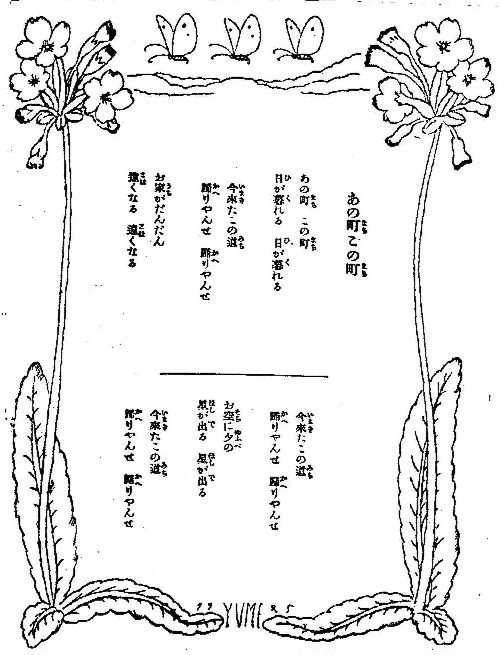 あの町この町
あの町 この町
日が暮れる 日が暮れる
今來たこの道
歸りやんせ 歸りやんせ
お家がだんだん
遠くなる 遠くなる
今來たこの道
歸りやんせ 歸りやんせ
お空に夕の
星が出る 星が出る
今來たこの道
歸りやんせ 歸りやんせ
YUME 25